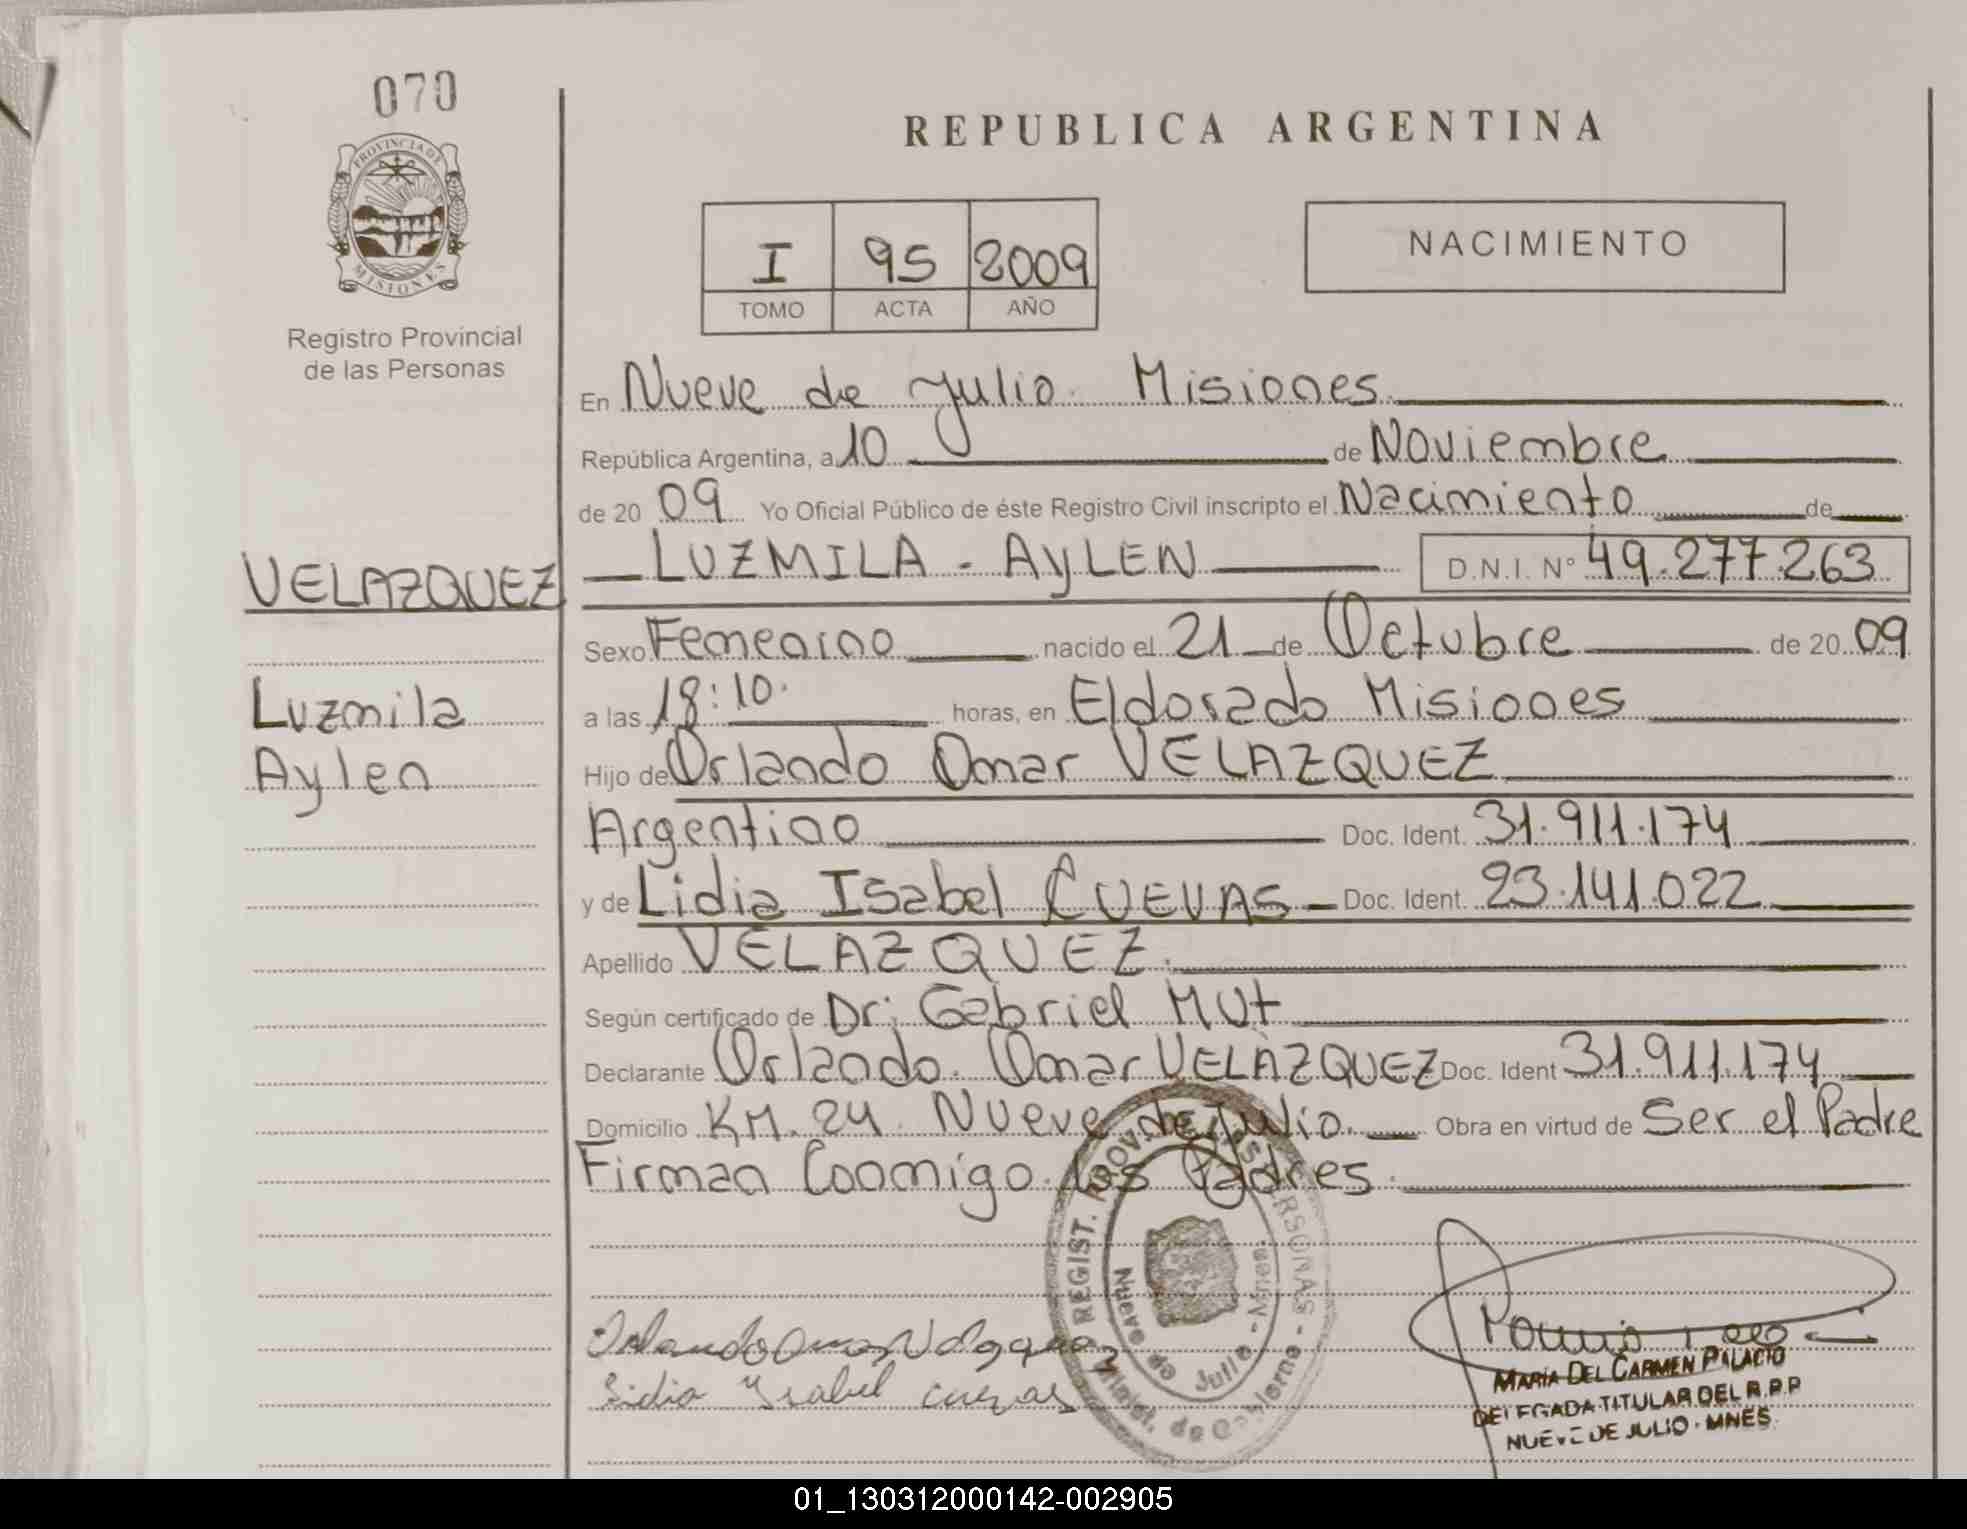 070
REPUBLICA ARGENTINA
PROVINCIA DE
MISIONES
Registro Provincial
de las Personas
I 95 2009
TOMO ACTA AÑO
NACIMIENTO
En Nueve de Julio. Misiones
República Argentina, a 10 de Noviembre
de 20 09 Yo Oficial Público de éste Registro Civil inscripto el Nacimiento de
VELAZQUEZ LUZMILA - AYLEN D.N.I. Nº 49.277.263
Sexo Femenino nacido el 21 de Octubre de 20 09
Luzmila a las 18:10. horas, en Eldorado Misiones
Aylen Hijo de Orlando Omar VELAZQUEZ
Argentino Doc. Ident. 31.911.174
y de Lidia Isabel CUEVAS Doc. Ident. 23.141.022
Apellido VELAZQUEZ.
Según certificado de Dr: Gabriel MUt
Declarante Orlando. Omar VELAZQUEZ Doc. Ident 31.911.174
Domicilio KM. 24. Nueve de Julio. Obra en virtud de Ser el Padre
Firman Conmigo los Padres.
REGIST. PROV. PERSONAS
Nueve de Julio - Mnes.
Minist. de Gobierno
Lidia Ysabel cuevas
MARIA DEL CARMEN PALACIO
DELEGADA TITULAR DEL R.P.P
NUEVE DE JULIO - MNES.
01_130312000142-002905